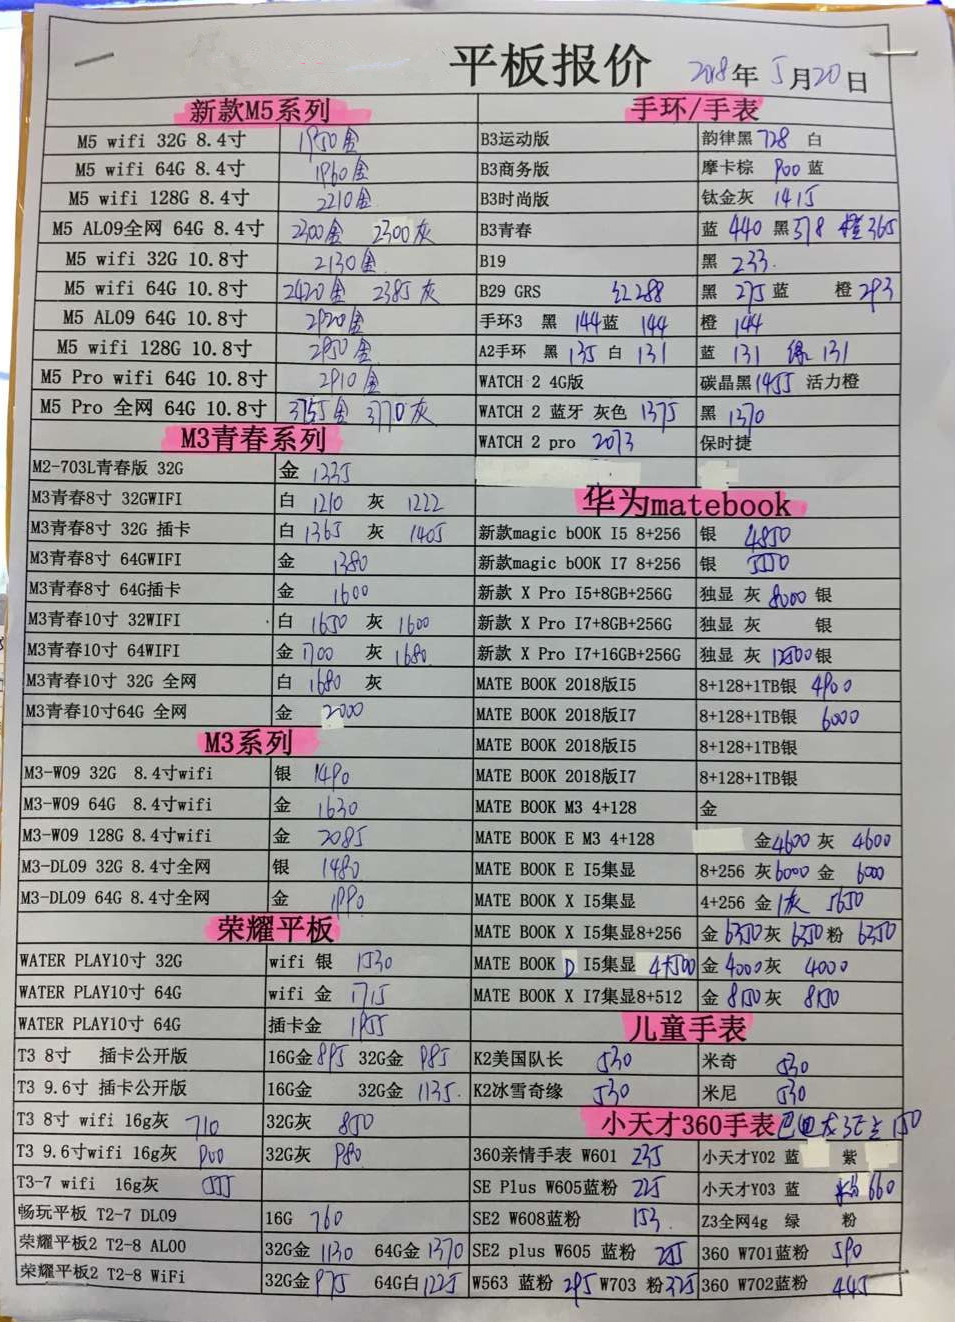 平板报价 2018年 5月20日
新款M5系列
M5 wifi 32G 8.4寸 1850金
M5 wifi 64G 8.4寸 1960金
M5 wifi 128G 8.4寸 2210金
M5 AL09全网 64G 8.4寸 2300金 2300灰
M5 wifi 32G 10.8寸 2130金
M5 wifi 64G 10.8寸 2420金 2385灰
M5 AL09 64G 10.8寸 2920金
M5 wifi 128G 10.8寸 2950金
M5 Pro wifi 64G 10.8寸 2910金
M5 Pro 全网 64G 10.8寸 3755金 3770灰
M3青春系列
M2-703L青春版 32G 金 1235
M3青春8寸 32GWIFI 白 1210 灰 1222
M3青春8寸 32G 插卡 白 1365 灰 1405
M3青春8寸 64GWIFI 金 1380
M3青春8寸 64G插卡 金 1600
M3青春10寸 32WIFI 白 1650 灰 1600
M3青春10寸 64WIFI 金 1700 灰 1680
M3青春10寸 32G 全网 白 1680 灰
M3青春10寸64G 全网 金 2000
M3系列
M3-W09 32G 8.4寸wifi 银 1490
M3-W09 64G 8.4寸wifi 金 1630
M3-W09 128G 8.4寸wifi 金 2085
M3-DL09 32G 8.4寸全网 银 1480
M3-DL09 64G 8.4寸全网 金 1990
荣耀平板
WATER PLAY10寸 32G wifi 银 1530
WATER PLAY10寸 64G wifi 金 1715
WATER PLAY10寸 64G 插卡金 1955
T3 8寸 插卡公开版 16G金 895 32G金 985
T3 9.6寸 插卡公开版 16G金 32G金 1135
T3 8寸 wifi 16g灰 710 32G灰 850
T3 9.6寸wifi 16g灰 900 32G灰 980
T3-7 wifi 16g灰 555
畅玩平板 T2-7 DL09 16G 760
荣耀平板2 T2-8 AL00 32G金 1130 64G金 1370
荣耀平板2 T2-8 WiFi 32G金 975 64G白 1225
手环/手表
B3运动版 韵律黑 728 白
B3商务版 摩卡棕 900 蓝
B3时尚版 钛金灰 1415
B3青春 蓝 440 黑 378 橙 365
B19 黑 233
B29 GRS 红288 黑 275 蓝 橙 293
手环3 黑 144 蓝 144 橙 144
A2手环 黑 135 白 131 蓝 131 绿 131
WATCH 2 4G版 碳晶黑 1455 活力橙
WATCH 2 蓝牙 灰色 1375 黑 1370
WATCH 2 pro 2073 保时捷
华为matebook
新款magic bOOK I5 8+256 银 4850
新款magic bOOK I7 8+256 银 5550
新款 X Pro I5+8GB+256G 独显 灰 8000 银
新款 X Pro I7+8GB+256G 独显 灰 银
新款 X Pro I7+16GB+256G 独显 灰 12500 银
MATE BOOK 2018版I5 8+128+1TB银 4900
MATE BOOK 2018版I7 8+128+1TB银 6000
MATE BOOK 2018版I5 8+128+1TB银
MATE BOOK 2018版I7 8+128+1TB银
MATE BOOK M3 4+128 金
MATE BOOK E M3 4+128 金4600 灰 4600
MATE BOOK E I5集显 8+256 灰6000 金 6000
MATE BOOK X I5集显 4+256 金 灰 5650
MATE BOOK X I5集显8+256 金 6350 灰 6250 粉 6250
MATE BOOK D I5集显 4+500 金 4000 灰 4000
MATE BOOK X I7集显8+512 金 8150 灰 8150
儿童手表
K2美国队长 530 米奇 530
K2冰雪奇缘 530 米尼 530
小天才360手表 150
360亲情手表 W601 235 小天才Y02 蓝 紫
SE Plus W605蓝粉 225 小天才Y03 蓝 粉 660
SE2 W608蓝粉 153 Z3全网4g 绿 粉
SE2 plus W605 蓝粉 255 360 W701蓝粉 590
W563 蓝粉 295 W703 粉 325 360 W702蓝粉 445